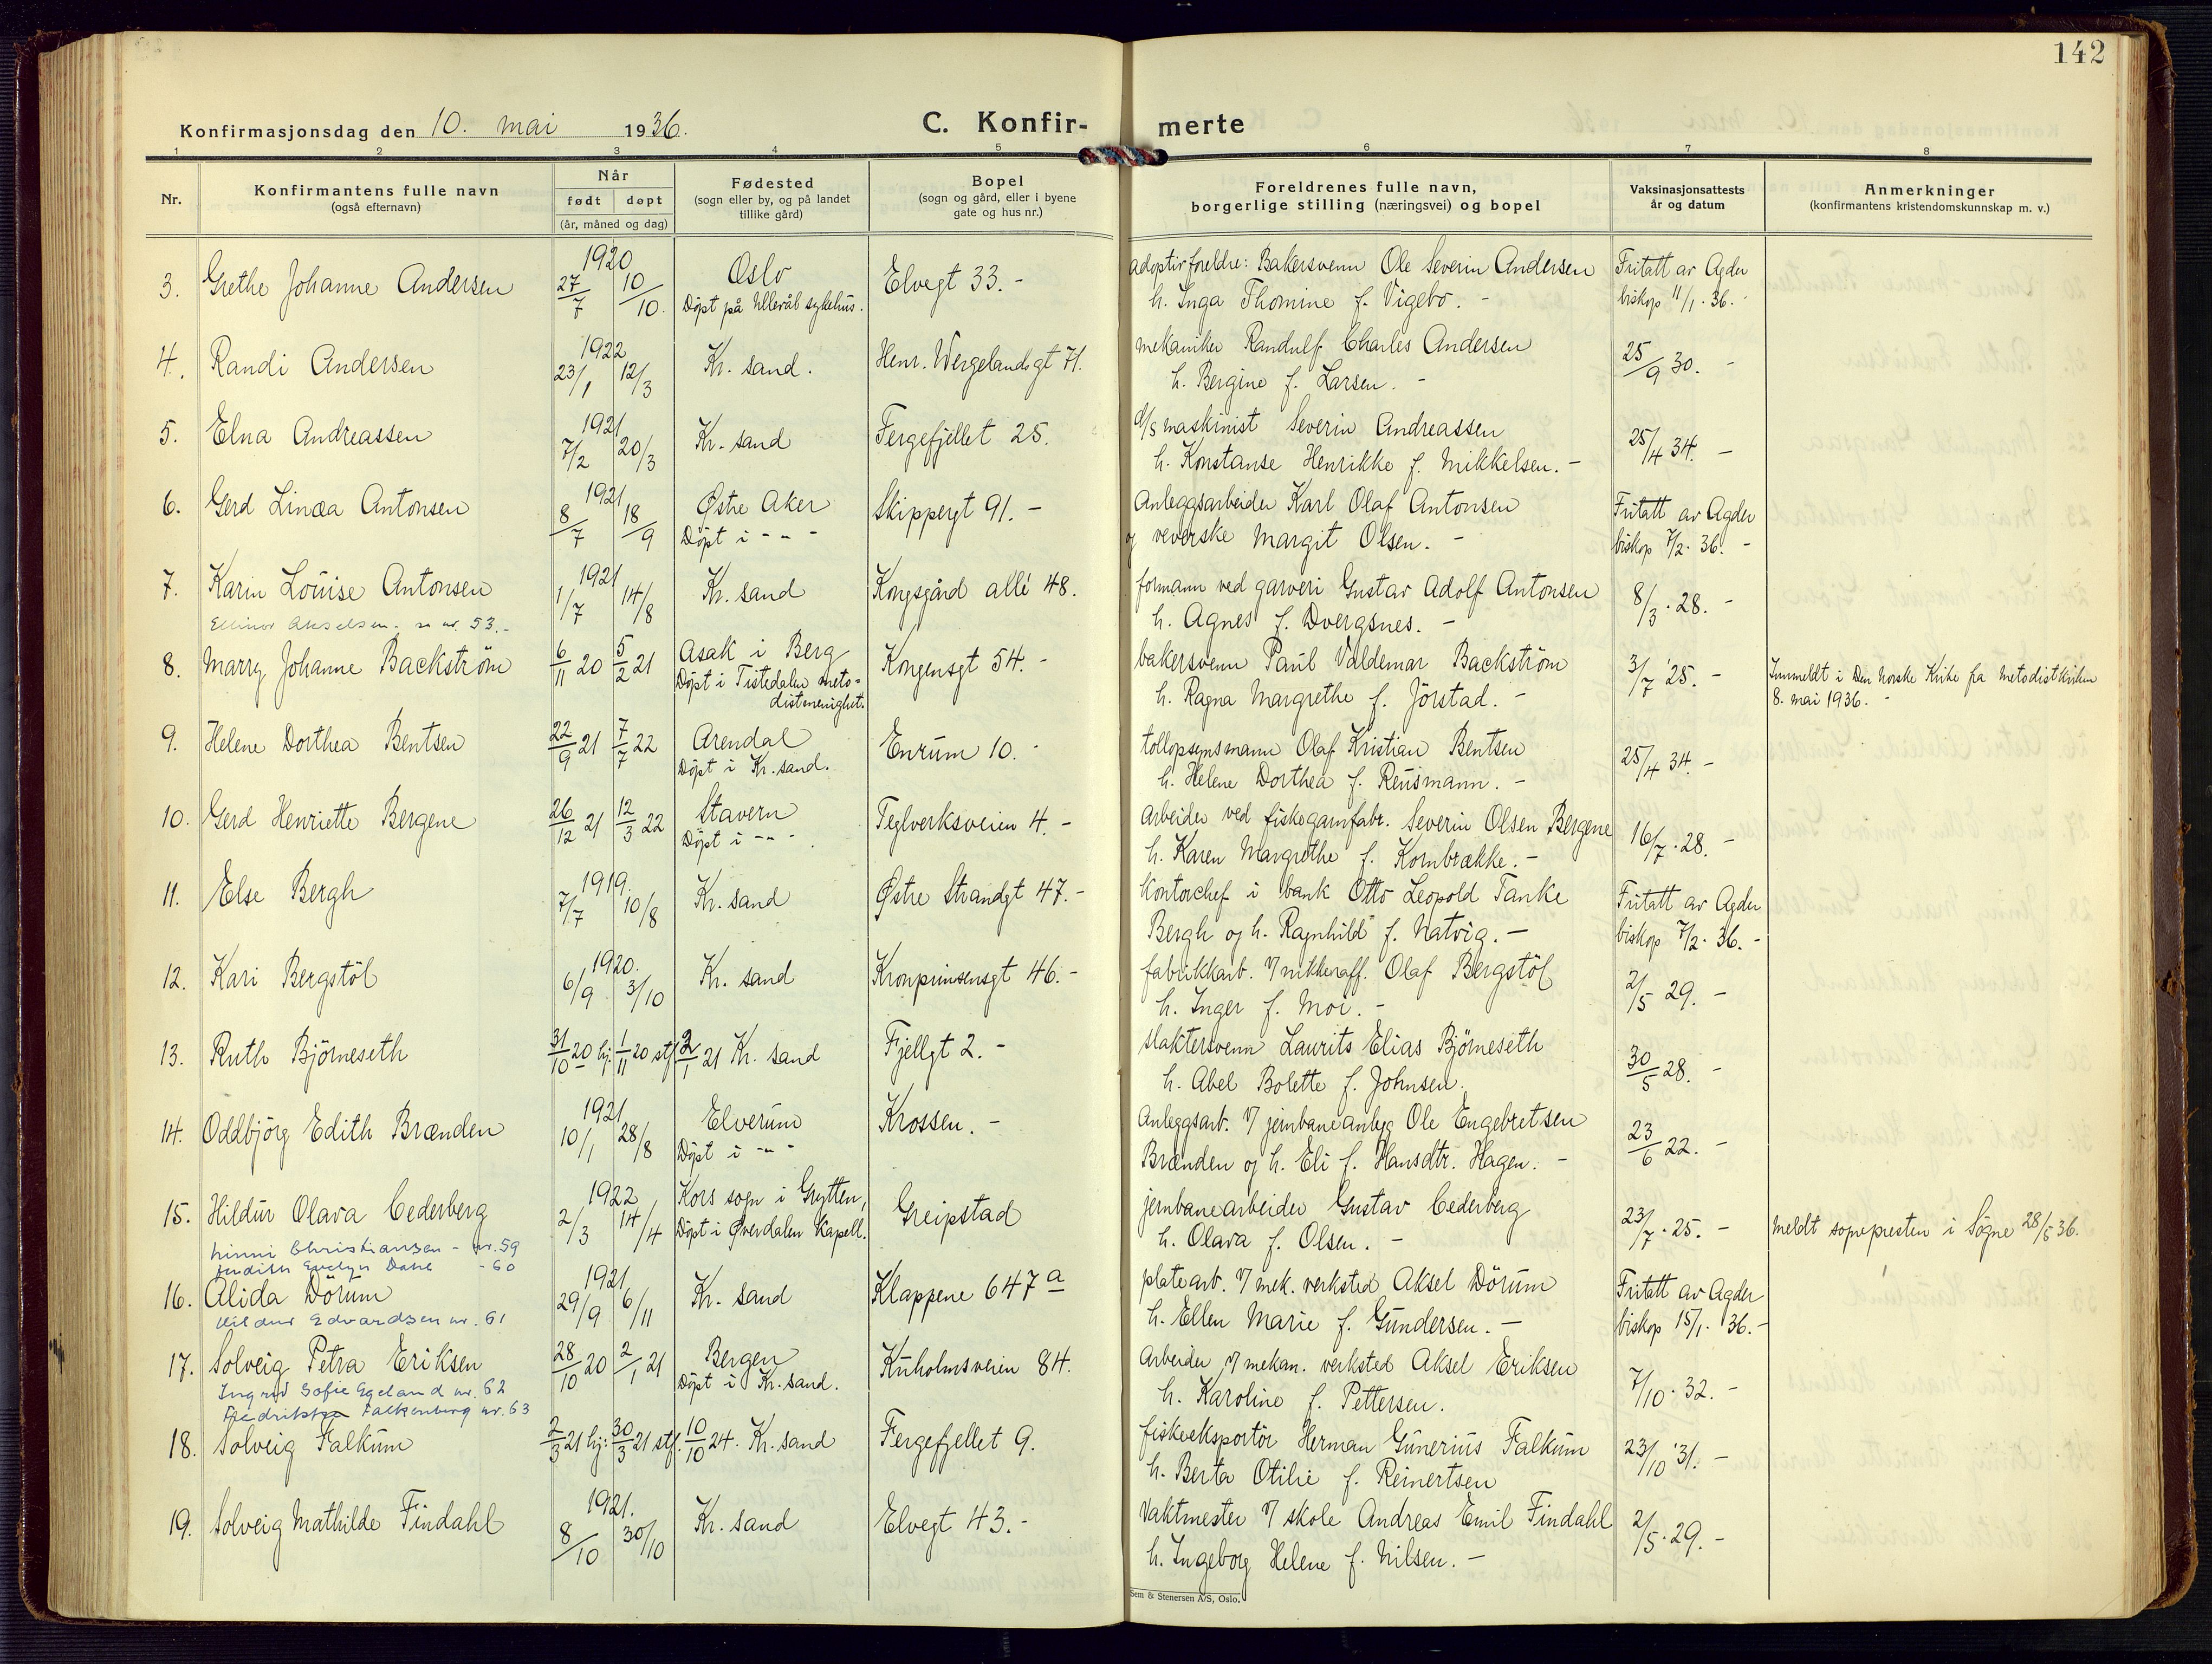 142
Konfirmasjonsdag den 10. mai 1936.
C. Konfir-merte
1 2 3 4 5 6 7 8
Nr.
Konfirmantens fulle navn
(også efternavn)
Når
født døpt
(år, måned og dag)
Fødested
(sogn eller by, og på landet
tillike gård)
Bopel
(sogn og gård, eller i byene
gate og hus nr.)
Foreldrenes fulle navn,
borgerlige stilling (næringsvei) og bopel
Vaksinasjonsattests
år og datum
Anmerkninger
(konfirmantens kristendomskunnskap m. v.)
3. Grethe Johanne Andersen 1920 27/7 10/10. Oslo Elvegt 33. - adoptivforeldre: Bakersvenn Ole Severin Andersen Fritatt av Agder
Døpt på Ullevål sykehus. h. Inga Thomine f. Vigebo. - biskop 11/1. 36. -
4. Randi Andersen 1922 23/1 12/3 Kr. sand. Henr. Wergelandsgt 71. mekaniker Randulf Charles Andersen 25/9 30. -
h. Bergine f. Larsen. -
5. Elna Andreassen 1921 7/2 20/3 Kr. sand Fergefjellet 25. d/s maskinist Severin Andreassen 25/4 34. -
h. Konstanse Henrikke f. Mikkelsen. -
6. Gerd Linæa Antonsen 1921 8/7 18/9 Østre Aker Skippergt 91. - Anleggsarbeider Karl Olaf Antonsen Fritatt av Agder
Døpt i - " - og veverske Margit Olsen. - biskop 7/2. 36. -
7. Karin Louise Antonsen 1921 1/7 14/8 Kr. sand Kongsgård allé 48. formann ved garveri Gustav Adolf Antonsen 8/3. 28. -
Ellinor Akselsen - se nr. 53. - h. Agnes f. Dvergsnes. -
8. Marry Johanne Backström 6/11 20 5/2 21 Asak i Berg Kongensgt 54. - bakersvenn Paul Valdemar Backström 3/7 '25. - Innmeldt i Den norske Kirke fra metodistkirken
Døpt i Tistedalen meto- h. Ragna Margrethe f. Jörstad. - 8. mai 1936. -
distmenighet.
9. Helene Dorthea Bentsen 22/9 21 7/7 22 Arendal Enrum 10. - tollopsynsmann Olaf Kristian Bentsen 25/4 34. -
Døpt i Kr. sand. h. Helene Dorthea f. Reusmann. -
10. Gerd Henriette Bergene 26/12 21 12/3 22 Stavern Teglverksveien 4. - arbeider ved fiskegarnfabr. Severin Olsen Bergene 16/7. 28. -
Døpt i - " - h. Karen Margrethe f. Kornbrække. -
11. Else Bergh 1919. 7/7 10/8 Kr. sand Østre Strandgt 47. - Kontorchef i bank Otto Leopold Tanke Fritatt av Agder
Bergh og h. Ragnhild f. Natvig. - biskop 7/2. 36. -
12. Kari Bergstöl 1920. 6/9. 3/10 Kr. sand Kronprinsensgt 46. - fabrikkarb. v/ nikkelraff. Olaf Bergstöl 2/5 29. -
h. Inger f. Moi. -
13. Ruth Björneseth 31/10 20 hj: 1/11 20 stf. 2/1 21 Kr. sand Fjellgt 2. - slaktersvenn Laurits Elias Björneseth 30/5 28. -
h. Abel Bolette f. Johnsen.
14. Oddbjörg Edith Brænden 1921 10/1 28/8 Elverum Krossen. - Anleggsarb. v/ jernbaneanlegg Ole Engebretsen 23/6 22. -
Døpt i - " - Brænden og h. Eli f. Hansdtr. Hagen. -
15. Hildur Olava Cederberg 1922 2/3 14/4 Kors sogn i Grytten, Greipstad jernbanearbeider Gustav Cederberg 23/7. 25. - meldt sognepresten i Sögne 28/5 36.
Døpt i Øverdalen Kapell. h. Olava f. Olsen. -
Minni Christiansen - nr. 59
Judith Evelyn Dahl - 60
16. Alida Dörum 1921 29/9 6/11 Kr. sand Klappene 647 a platearb. v/ mek. verksted Aksel Dörum Fritatt av Agder
Hildur Edvardsen nr. 61 h. Ellen Marie f. Gundersen. - biskop 15/1. 36. -
17. Solveig Petra Eriksen 28/10 20 2/1 21 Bergen Kuholmsveien 84. Arbeider v/ mekan. verksted Aksel Eriksen 7/10. 32. -
Døpt i Kr. sand. h. Karoline f. Pettersen.
Ingrid Sofie Egeland nr. 62
Fredrikke Falkenberg nr. 63
18. Solveig Falkum 2/3 21 hj: 30/3 21 stf. 10/10 24. Kr. sand Fergefjellet 9. fiskeeksportör Herman Gunerius Falkum 23/10 '31. -
h. Berta Otilie f. Reinertsen
19. Solveig Mathilde Findahl 1921. 8/10 30/10 Kr. sand Elvegt 43. - Vaktmester v/ skole Andreas Emil Findahl 2/5. 29. -
h. Ingeborg Helene f. Nilsen. -
Sem & Stenersen A/S, Oslo.